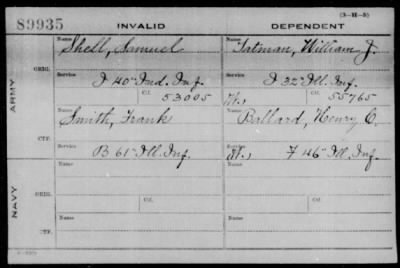 (3-H-8)
89935 INVALID DEPENDENT
Name Shell, Samuel Name Tatman, William J.
ORIG.
Service I 40" Ind. Inf. Service I 32" Ill. Inf.
Ctf. 53005 Ctf. 55765
ARMY
Name Smith, Frank Name Ballard, Henry C.
CTF.
Service B 61" Ill. Inf. Service F 46" Ill. Inf.
Name Ctf. Name Ctf.
ORIG.
NAVY
Name Name
CTF.